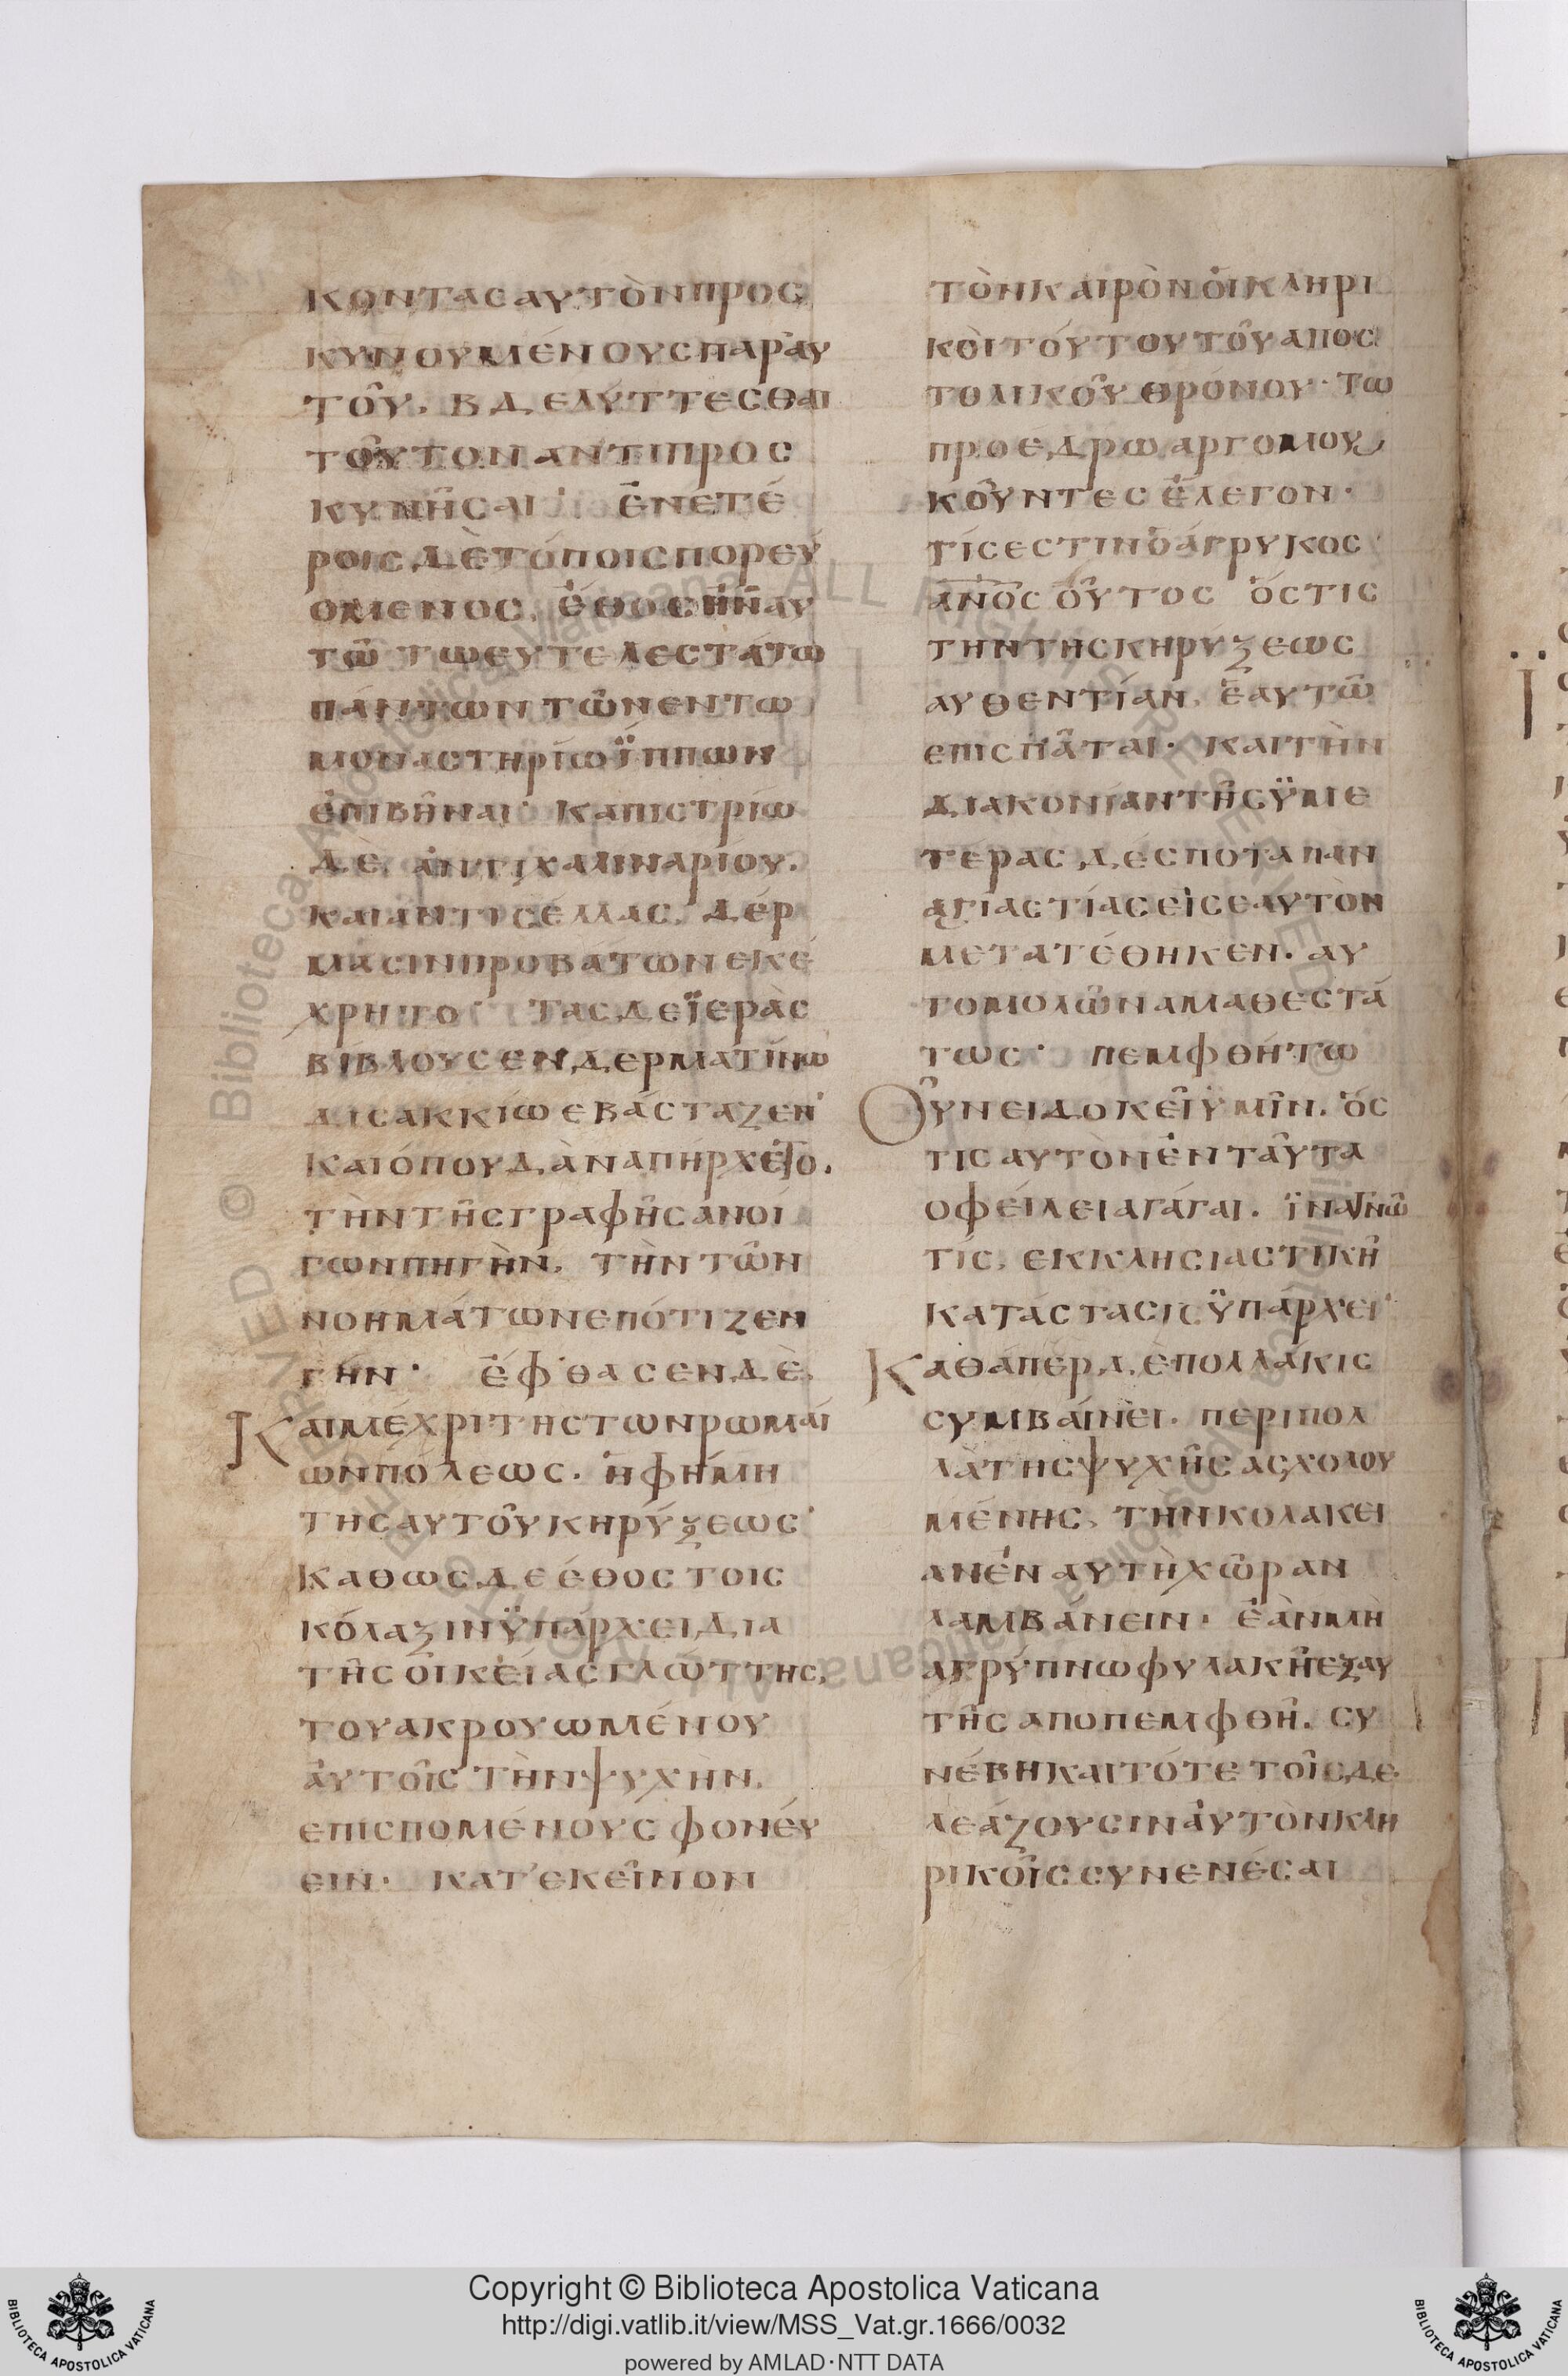 ΚΟΝΤΑCΑΥΤῸΝΠΡΟC
ΚΥΝΟΥΜΈΝΟΥCΠΑΡΑΥ
ΤΟῦ. ΒΔΕΛΎΤΤΕCΘΑΙ
ΤΟῦΤΟΝΑΝΤΙΠΡΟC
ΚΥΝΗ͂CΑΙ· ἘΝΕΤΈ
ΡΟΙCΔῈΤΌΠΟΙCΠΟΡΕΎ
ΟΜΕΝΟC, ἜΘΟCἮΝΑΥ
ΤΩ͂ ΤΩΕΥΤΕΛΕCΤΆΤΩ
ΠΆΝΤΩΝΤΩ͂ΝΕΝΤΩ
ΜΟΝΑCΤΗΡΊΩΪΠΠΩΝ
ἘΠΙΒΗ͂ΝΑΙ· ΚΑΠΙCΤΡΊΩ
ΔΕ ἈΝΤΙΧΑΛΙΝΑΡΊΟΥ.
ΚΑΙἈΝΤΙCΈΛΛΑC, ΔΈΡ
ΜΑCΙΝΠΡΟΒΆΤΩΝΕΚΈ
ΧΡΗΤΟ· ΤΑCΔΕΪΕΡᾺC
ΒΊΒΛΟΥCΕΝΔΕΡΜΑΤΊΝΩ
ΔΙCΑΚΚΊΩΕΒΆCΤΑΖΕΝ·
ΚΑΙΌΠΟΥΔᾺΝΑΠΉΡΧΕΤΟ.
ΤῊΝΤΗ͂CΓΡΑΦΗ͂CΑΝΟΊ
ΓΩΝΠΗΓῊΝ, ΤῊΝΤΩ͂Ν
ΝΟΗΜΆΤΩΝΕΠΌΤΙΖΕΝ
ΓΗ͂Ν· ἜΦΘΑCΕΝΔῈ
ΚΑΙΜΈΧΡΙΤΗCΤΩΝΡΩΜΑΊ
ΩΝΠΌΛΕΩC. ἩΦΉΜΗ
ΤΗCΑΥΤΟῦΚΗΡΎΞΕΩC·
ΚΑΘΩCΔΕΈΘΟCΤΟΙC
ΚΌΛΑΞΙΝΫΠΆΡΧΕΙΔΙΑ
ΤΗ͂CΟἸΚΕΊΑCΓΛΏΤΤΗC,
ΤΟΥΑΚΡΟΥΩΜΈΝΟΥ
ἈΥΤΟΙ͂CΤῊΝΨΥΧῊΝ,
ΕΠΙCΠΟΜΈΝΟΥCΦΟΝΈΥ
ΕΙΝ· ΚΑΤ'ΕΚΕΙ͂ΝΟΝ
ΤῸΝΚΑΙΡῸΝΟἹΚΛΗΡΙ
ΚῸΙΤΟΎΤΟΥΤΟῦΑΠΟC
ΤΟΛΙΚΟῦΘΡΌΝΟΥ· ΤΩ
ΠΡΟΈΔΡΩΑΡΓΟΜΟΥ
ΚΟῦΝΤΕCἜΛΕΓΟΝ·
ΤΊCΕCΤΙΝὉἌΓΡΥΚΟC
ΑΝΟC ΟὟΤΟC ὍCΤΙC
ΤΗΝΤΗCΚΗΡΎΞΕΩC
ΑΥΘΕΝΤΊΑΝ, ἙΑΥΤΩ͂
ΕΠΙCΠΑ͂ΤΑΙ· ΚΑΙΤῊΝ
ΔΙΑΚΟΝΊΑΝΤΗ͂CΫΜΕ
ΤΈΡΑCΔΈCΠΟΤΑΠΑΝ
ΑΓΙΑCΤΊΑCΕἸCΕΑΥΤῸΝ
ΜΕΤΑΤΈΘΗΚΕΝ. ΑΥ
ΤΟΜΟΛΩ͂ΝΑΜΑΘΕCΤΆ
ΤΩC· ΠΕΜΦΘΉΤΩ
ΟῪΝΕΙΔΟΚΕΙ͂ΥΜΙ͂Ν. ὍC
ΤΙCΑΥΤῸΝἘΝΤΑΥ͂ΤΑ
ΟΦΕΊΛΕΙΑΓΆΓΑΙ. ΪΝΑΓΝΩ͂
ΤΊC, ΕΚΚΛΗCΙΑCΤΙΚΗ͂
ΚΑΤΆCΤΑCΙCΫΠΆΡΧΕΙ·
ΚΑΘΆΠΕΡΔΈΠΟΛΛΆΚΙC
CΥΜΒΑΊΝΕΙ. ΠΕΡΙΠΟΛ
ΛᾺΤΗCΨΥΧΗ͂CΑCΧΟΛΟΥ
ΜΈΝΗC, ΤῊΝΚΟΛΑΚΕΙ
ΑΝἘΝΑΥΤΗ͂ΧΏΡΑΝ
ΛΑΜΒΑΝΕΙΝ· ἘᾺΝΜῊ
ΑΓΡΎΠΝΩΦΥΛΑΚΗ͂ΕΞΑΥ
ΤΗ͂CΑΠΟΠΕΜΦΘΗ͂. CΥ
ΝΈΒΗΚΑΙΤΌΤΕΤΟΙ͂CΔΕ
ΛΕΆΖΟΥCΙΝἈΥΤῸΝΚΛΗ
ΡΙΚΟΙ͂CCΥΝΕΝΈCΑΙ
Copyright © Biblioteca Apostolica Vaticana
http://digi.vatlib.it/view/MSS_Vat.gr.1666/0032
powered by AMLAD·NTT DATA
BIBLIOTECA APOSTOLICA VATICANA
BIBLIOTECA APOSTOLICA VATICANA